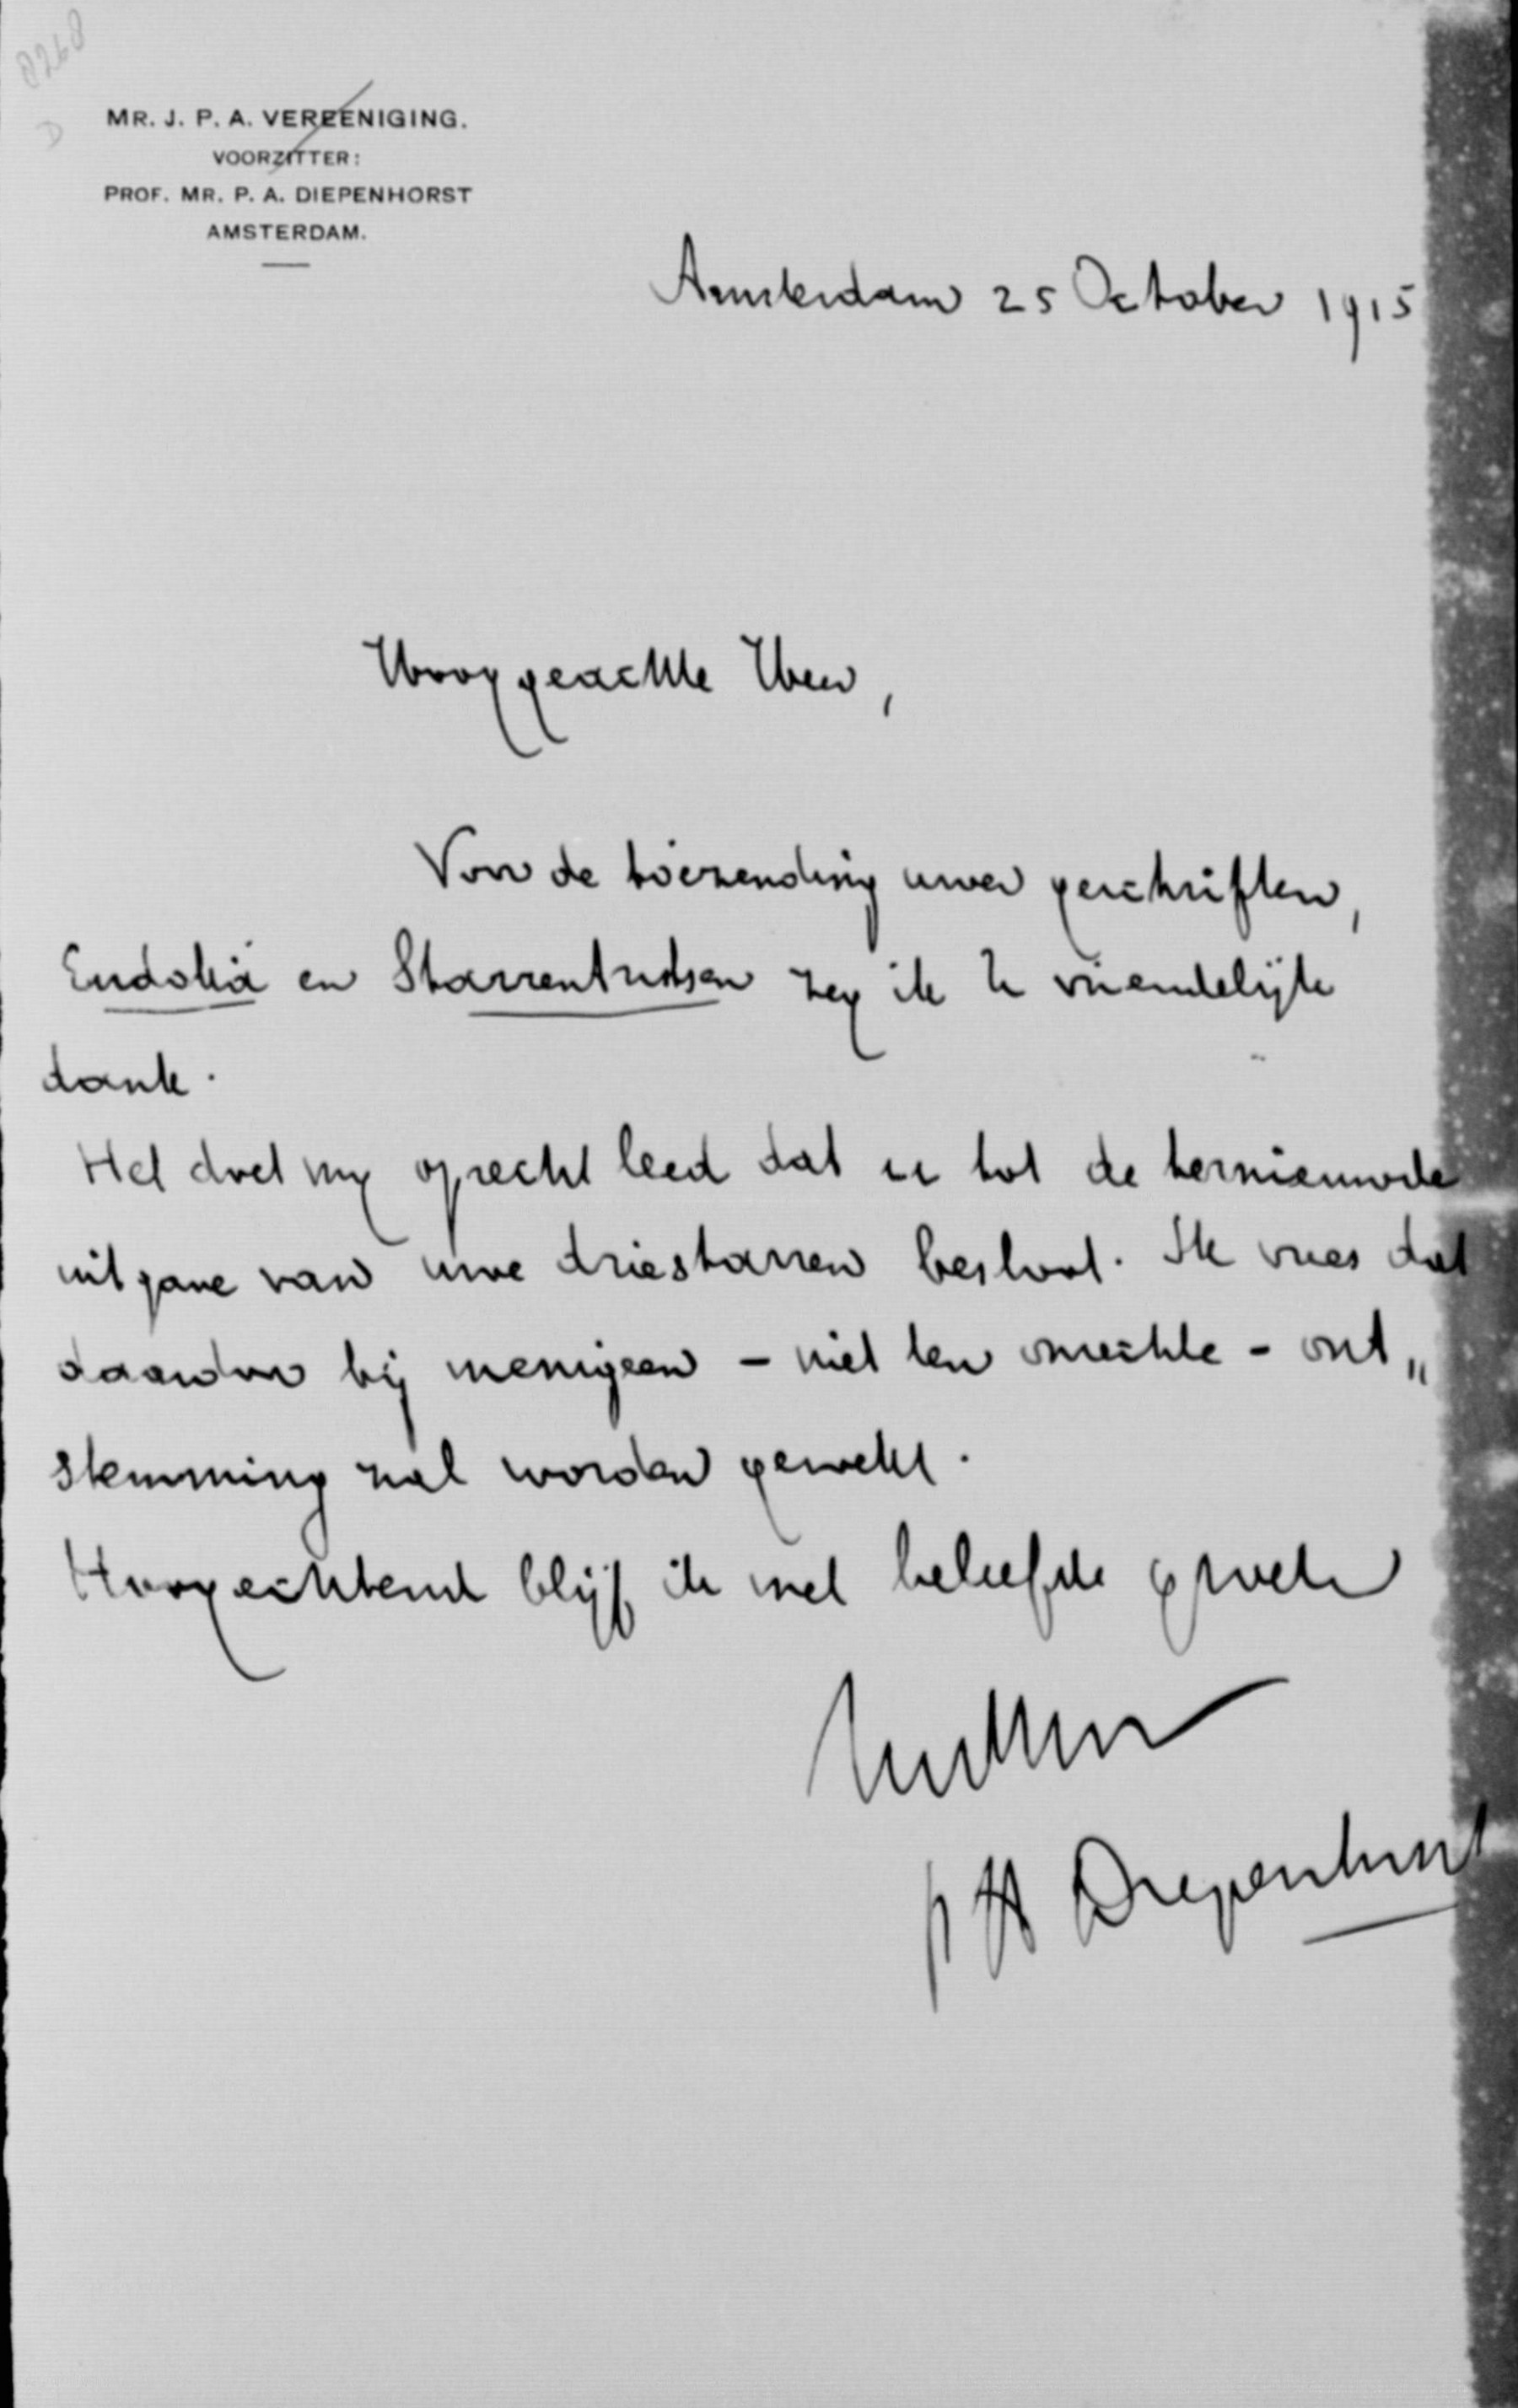 8268
D
MR. J. P. A. VEREENIGING.
VOORZITTER:
PROF. MR. P. A. DIEPENHORST
AMSTERDAM.
Amsterdam 25 October 1915
Hooggeachte Heer,
Voor de toezending uwer geschriften,
Eudokia en Starrentritsen zeg ik U vriendelijk
dank.
Het doet my oprecht leed dat u tot de hernieuwde
uitgave van uwe driestarren besloot. Ik vrees dat
daardoor bij menigeen - niet ten onrechte - ont„
stemming zal worden gewekt.
Hoogachtend blijf ik met beleefde groeten
PA Diepenhorst